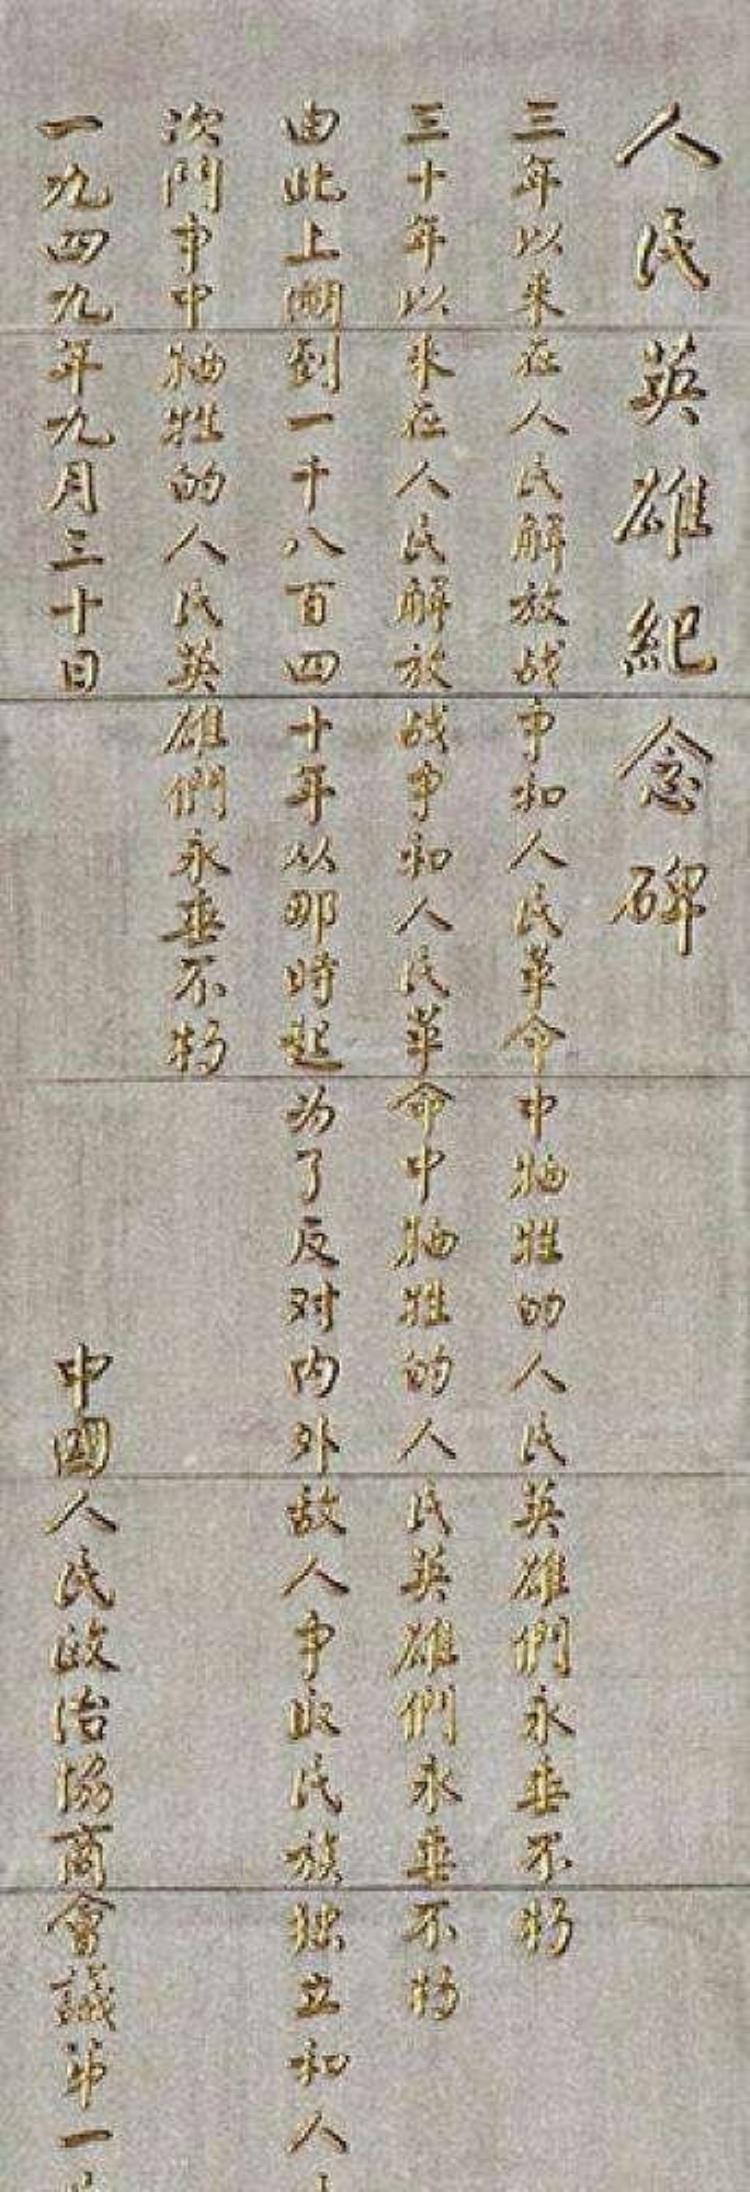 人民英雄紀念碑
三年以来在人民解放战争和人民革命中牺牲的人民英雄們永垂不朽
三十年以来在人民解放战争和人民革命中牺牲的人民英雄們永垂不朽
由此上溯到一千八百四十年从那時起为了反对内外敌人争取民族独立和人
次鬥争中牺牲的人民英雄們永垂不朽
一九四九年九月三十日 中國人民政治協商會議第一